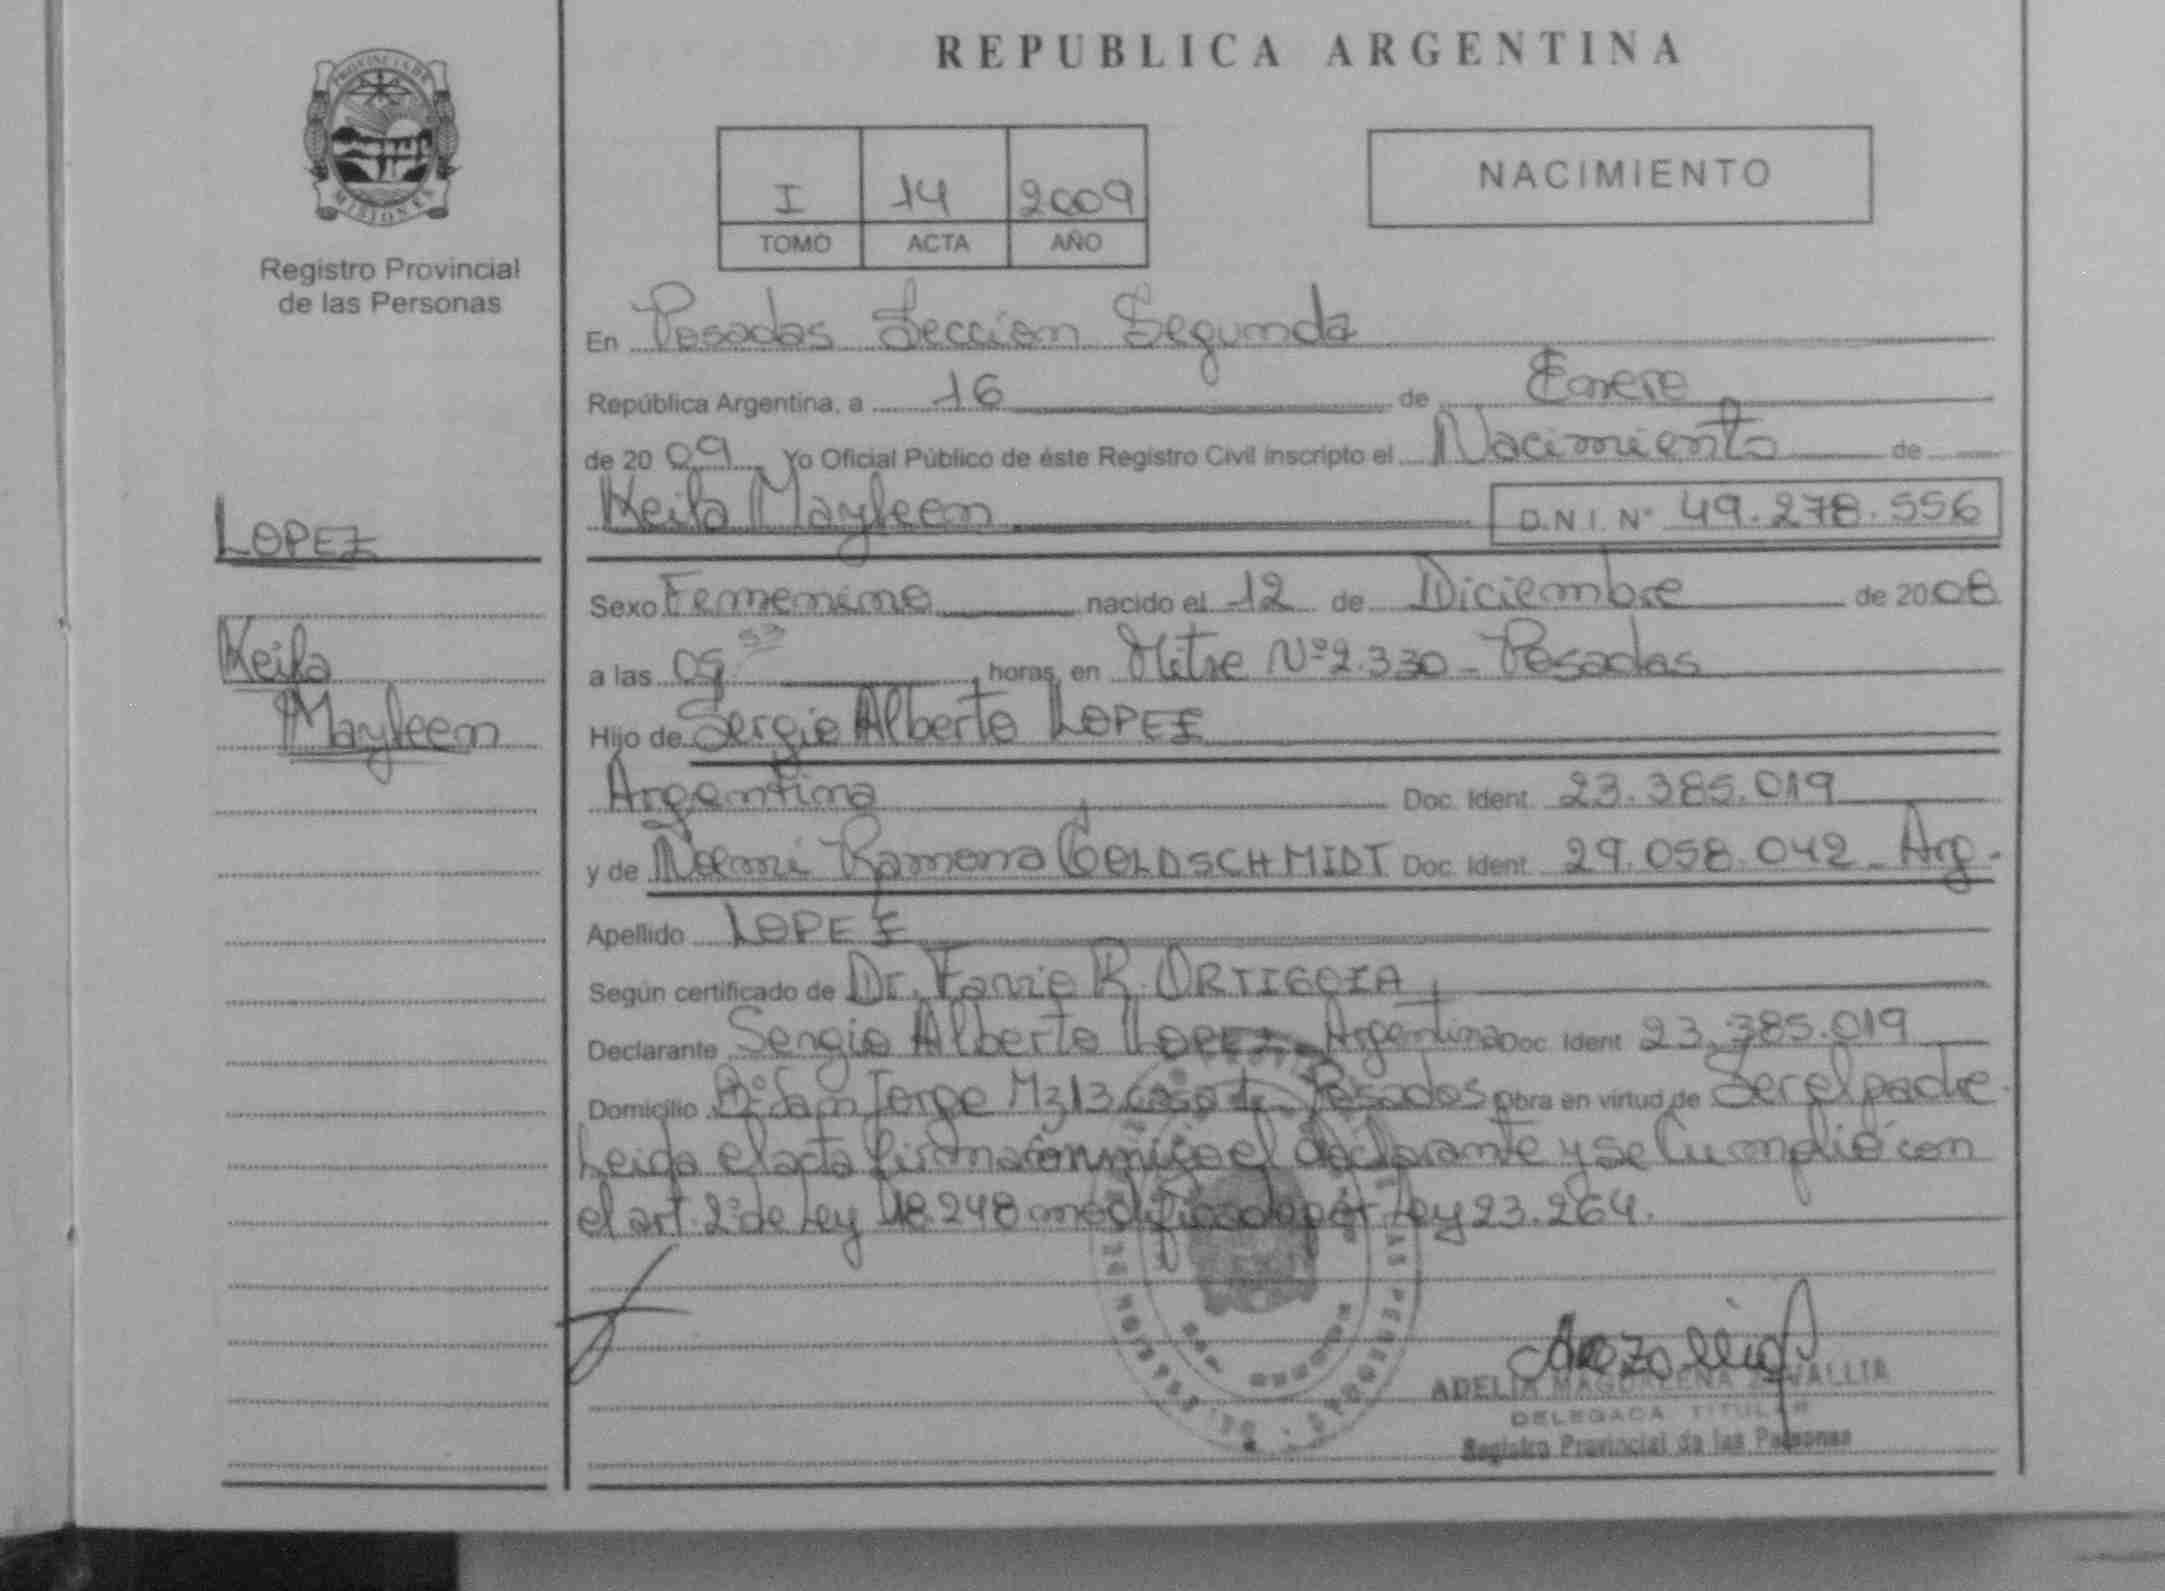 REPUBLICA ARGENTINA
PROVINCIA DE
MISIONES
Registro Provincial
de las Personas
I 14 2009
TOMO ACTA AÑO
NACIMIENTO
En Posadas Seccion Segunda
República Argentina, a 16 de Enero
de 20 09 Yo Oficial Público de éste Registro Civil inscripto el Nacimiento de
Keila Mayleen D.N.I. Nº 49.278.556
LOPEZ
Keila
Mayleen
Sexo Femenino nacido el 12 de Diciembre de 2008
a las 09 horas, en Mitre Nº 2.330 - Posadas
Hijo de Sergio Alberto LOPEZ
Argentina Doc. Ident. 23.385.019
y de Noemi Ramona GOLDSCHMIDT Doc. Ident. 29.058.042 - Arg.
Apellido LOPEZ
Según certificado de Dr. R. ORTIGOZA
Declarante Sergio Alberto LOPEZ - Argentina Doc. Ident 23.385.019
Domicilio Bº San Jorge Mz 13 casa Posadas Obra en virtud de Ser el padre.
Leida el acta firma conmigo el declarante y se Cumplió con
el art. 2º de Ley 18.248 modificado por Ley 23.264.
ADELIA MAGDALENA ZAVALLIA
DELEGADA TITULAR
Registro Provincial de las Personas